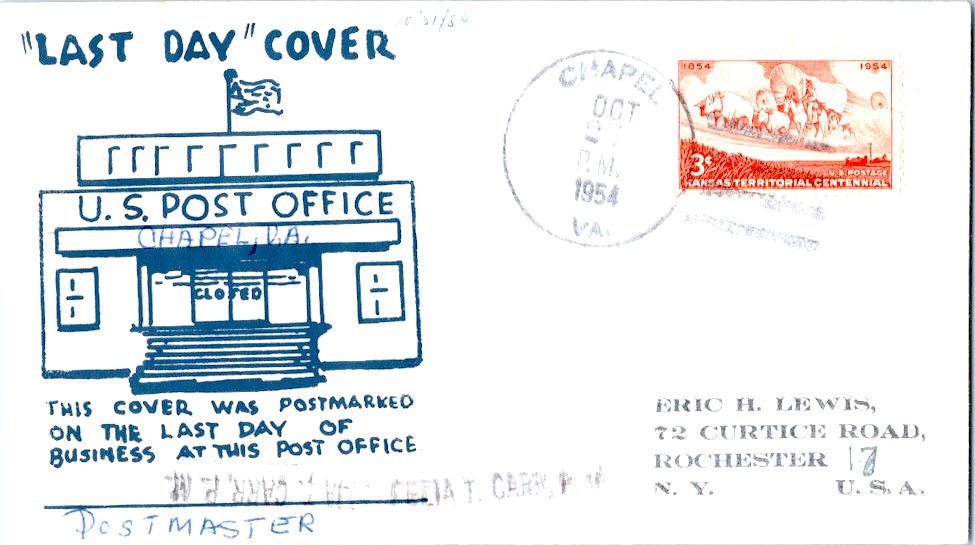 "LAST DAY" COVER
U. S. POST OFFICE
CHAPEL, VA.
CLOSED
THIS COVER WAS POSTMARKED
ON THE LAST DAY OF
BUSINESS AT THIS POST OFFICE
T. CARR, P. M.
POSTMASTER
CHAPEL
OCT
P.M.
1954
VA.
1854 1954
3¢
U.S. POSTAGE
KANSAS TERRITORIAL CENTENNIAL
ERIC H. LEWIS,
72 CURTICE ROAD,
ROCHESTER 17
N. Y. U. S. A.